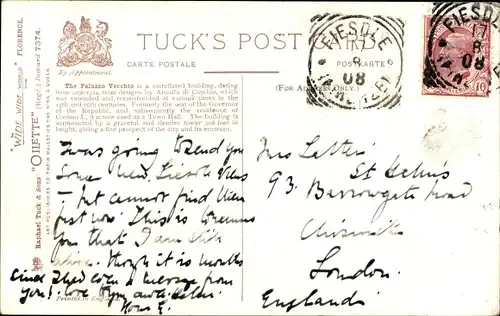 TUCK'S POST CARD
CARTE POSTALE
POSTKARTE
(For Address Only.)
By Appointment.
"WIDE-WIDE-WORLD" FLORENCE.
"OILETTE" (Regd.) Postcard 7374.
Raphael Tuck & Sons'
ART PUBLISHERS TO THEIR MAJESTIES THE KING & QUEEN.
The Palazzo Vecchio is a castellated building, dating
from 1298-1314, from designs by Arnolfo di Cambio, which
was extended and reconstructed at various times in the
15th and 16th centuries. Formerly the seat of the Governor
of the Republic, and subsequently the residence of
Cosimo I., it is now used as a Town Hall. The building is
surmounted by a graceful and slender tower 308 feet in
height, giving a fine prospect of the city and its environs.
Printed in England
FIESOLE
17
8
08
(FIRENZE)
FIESOLE
17
8
08
10
I was going to send you
some new Fiesole views
— but cannot find them
just now. This is
you that I am still
alive. Though it is months
since I had even a message from
you! Love
Yours E.
Mrs
St Helen's
93. Barrowgate Road
Chiswick
London.
England.